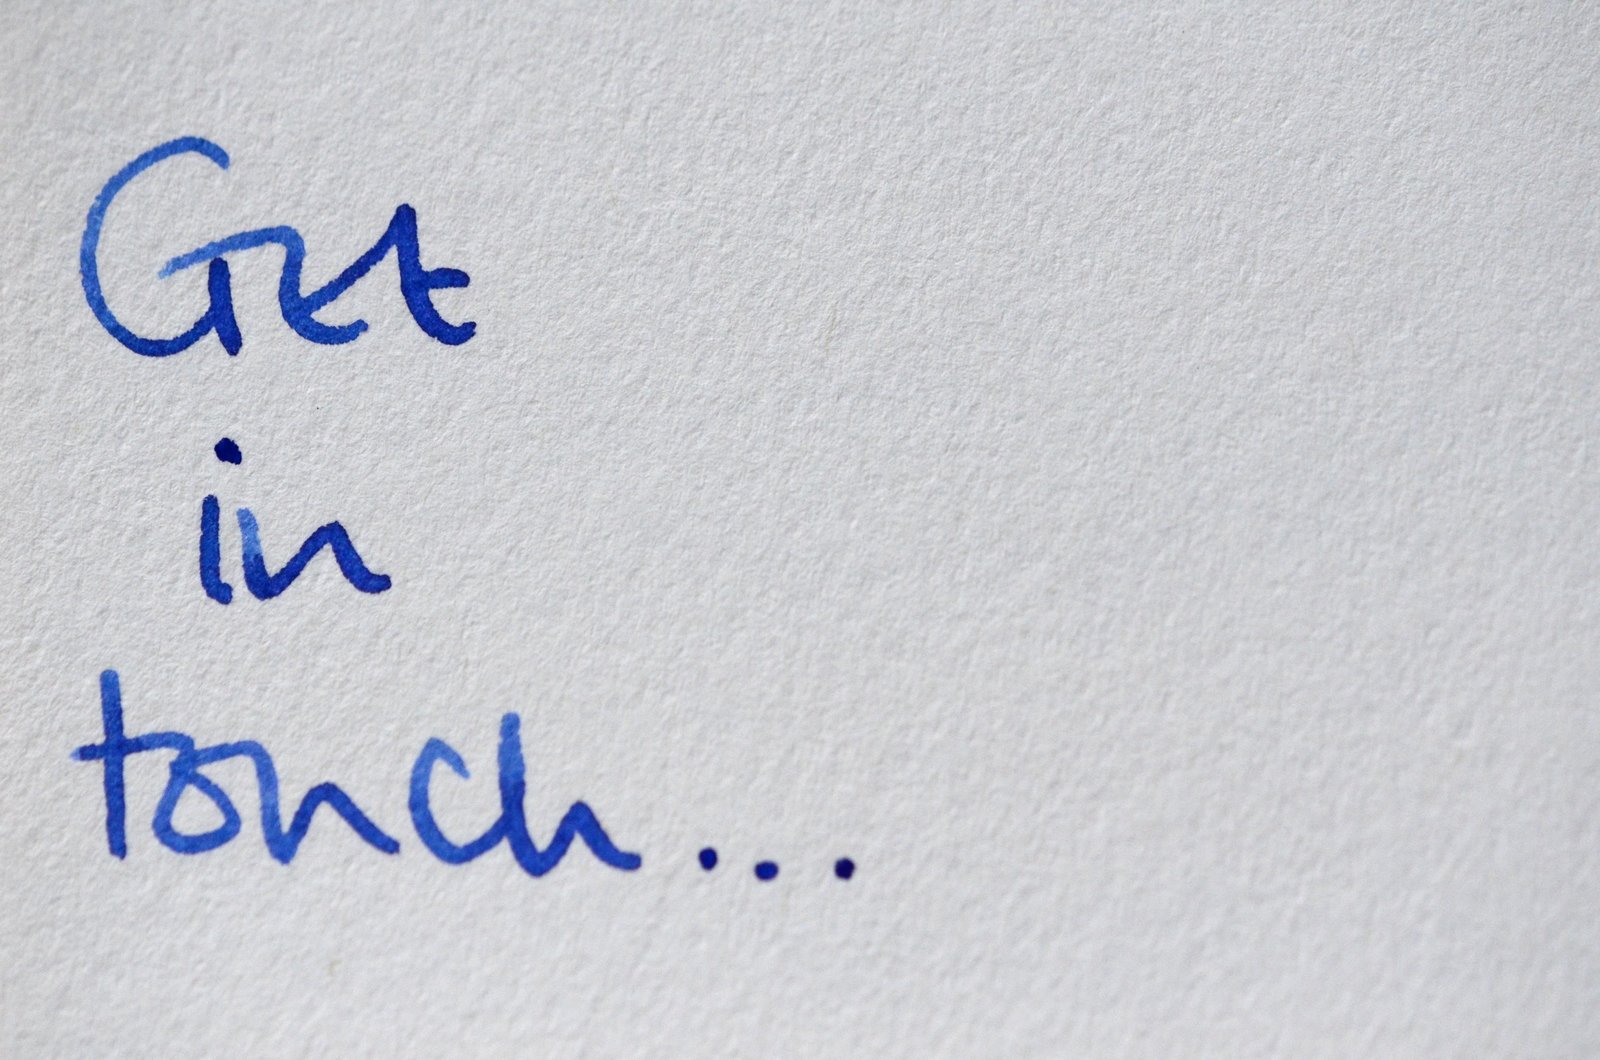 Get
in
touch...